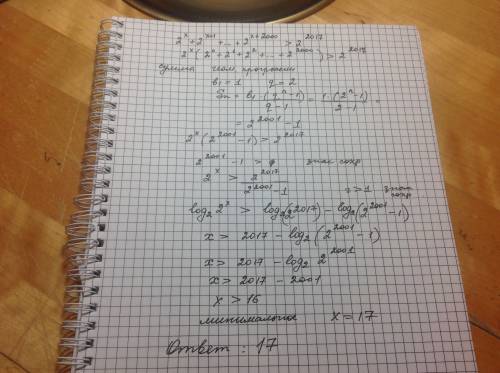 2^x + 2^{x+1} + ... + 2^{x+2000} > 2^{2017}
2^x (2^0 + 2^1 + 2^2 + ... + 2^{2000}) > 2^{2017}
сумма геом. прогрессии
b₁ = 1 q = 2
Sn = b₁ · (q^n - 1) / (q - 1) = 1 · (2^n - 1) / (2 - 1) =
= 2^{2001} - 1
2^x (2^{2001} - 1) > 2^{2017}
2^{2001} - 1 > 0 знак сохр
2^x > 2^{2017} / (2^{2001} - 1)
2 > 1 знак сохр
log₂ 2^x > log₂(2^{2017}) - log₂(2^{2001} - 1)
x > 2017 - log₂(2^{2001} - 1)
x > 2017 - log₂ 2^{2001}
x > 2017 - 2001
x > 16
минимальное x = 17
Ответ : 17